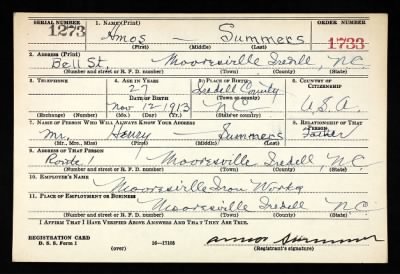 SERIAL NUMBER 1. NAME (Print) ORDER NUMBER
1273 Amos — Summers 1733
(First) (Middle) (Last)
2. ADDRESS (Print)
Bell St. Mooresville Iredell, N.C.
(Number and street or R. F. D. number) (Town) (County) (State)
3. TELEPHONE 4. AGE IN YEARS 5. PLACE OF BIRTH 6. COUNTRY OF CITIZENSHIP
27 Iredell County
DATE OF BIRTH (Town or county)
Nov 12-1913 N.C. U.S.A.
(Exchange) (Number) (Mo.) (Day) (Yr.) (State or country)
7. NAME OF PERSON WHO WILL ALWAYS KNOW YOUR ADDRESS 8. RELATIONSHIP OF THAT PERSON
Mr. Henry Summers Father
(Mr., Mrs., Miss) (First) (Middle) (Last)
9. ADDRESS OF THAT PERSON
Route 1 Mooresville, Iredell, N.C.
(Number and street or R. F. D. number) (Town) (County) (State)
10. EMPLOYER'S NAME
Mooresville Iron Works
11. PLACE OF EMPLOYMENT OR BUSINESS
Mooresville Iredell N.C.
(Number and street or R. F. D. number) (Town) (County) (State)
I AFFIRM THAT I HAVE VERIFIED ABOVE ANSWERS AND THAT THEY ARE TRUE.
REGISTRATION CARD
D. S. S. Form 1 (over) 16—17105 (Registrant's signature)